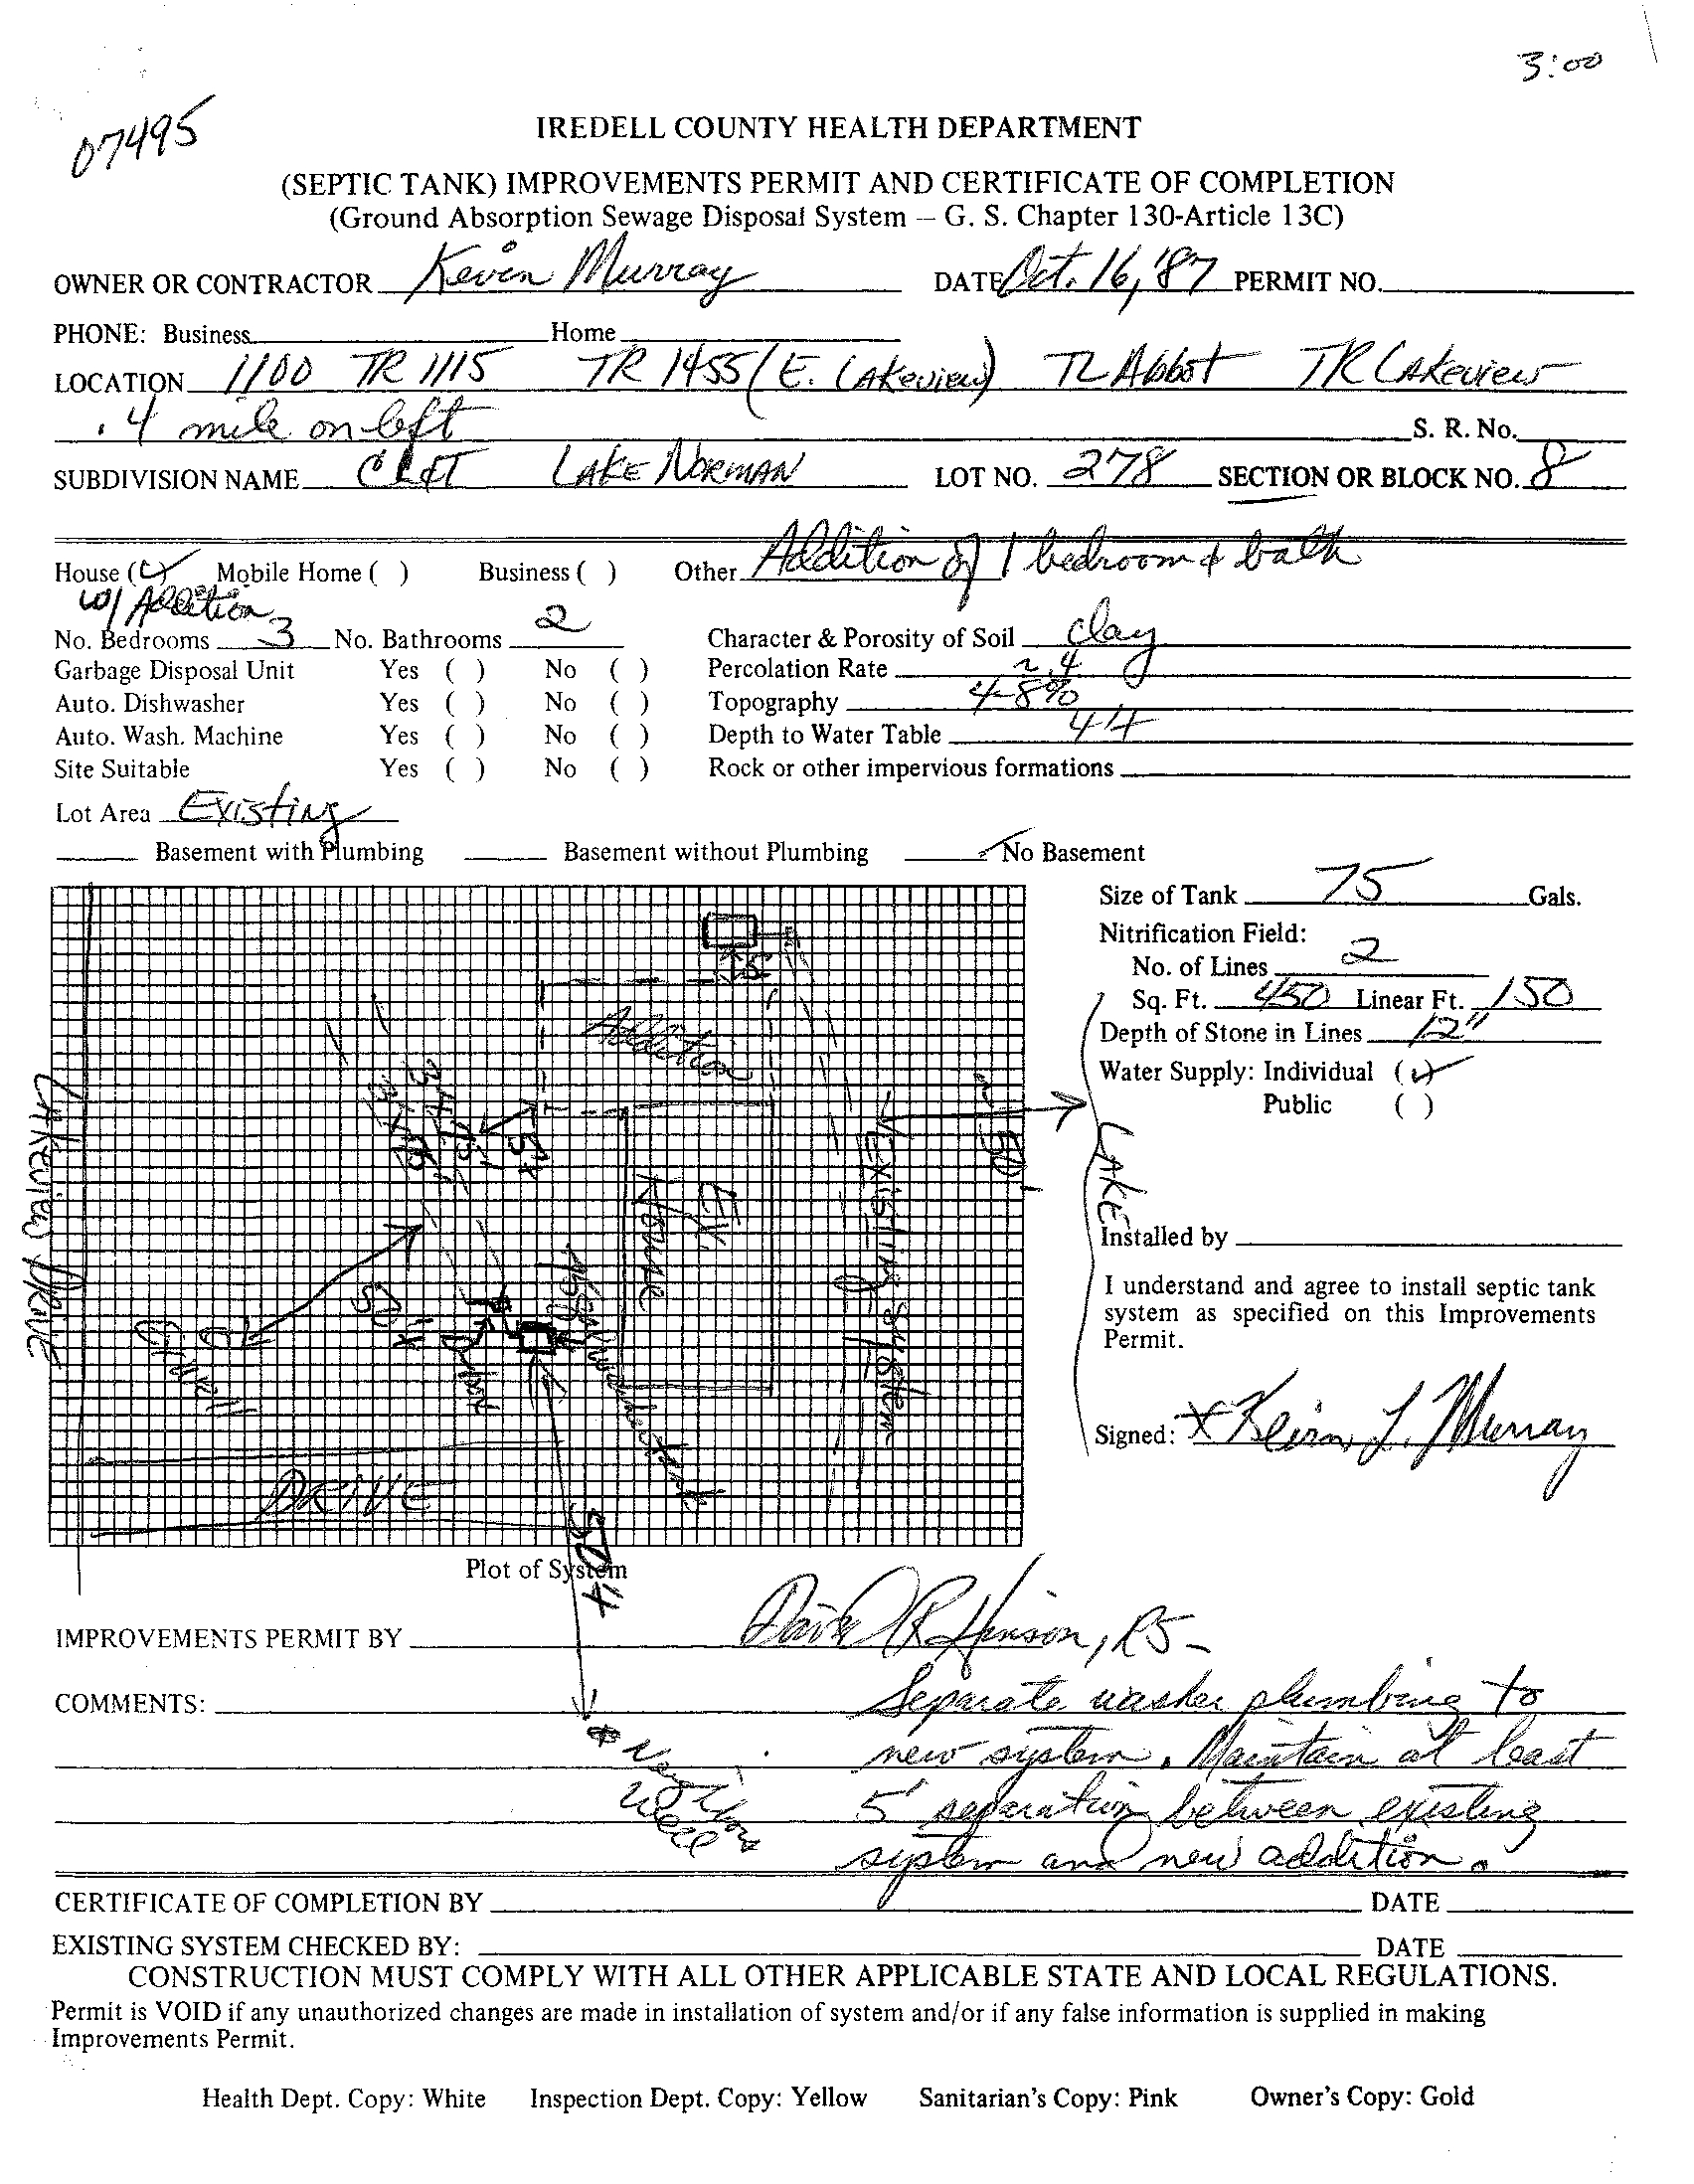 3:00
07495
IREDELL COUNTY HEALTH DEPARTMENT
(SEPTIC TANK) IMPROVEMENTS PERMIT AND CERTIFICATE OF COMPLETION
(Ground Absorption Sewage Disposal System — G. S. Chapter 130-Article 13C)
OWNER OR CONTRACTOR Kevin Murray DATE Oct. 16, '87 PERMIT NO.
PHONE: Business Home
LOCATION 1100 TR 1115 TR 1455 (E. Lakeview) TL Abbot TR Lakeview
.4 mile on left S. R. No.
SUBDIVISION NAME LAKE NORMAN LOT NO. 278 SECTION OR BLOCK NO. 8
House ( ) Mobile Home ( ) Business ( ) Other Addition of 1 bedroom & bath
w/ Addition
No. Bedrooms 3 No. Bathrooms 2 Character & Porosity of Soil clay
Garbage Disposal Unit Yes ( ) No ( ) Percolation Rate ~.4
Auto. Dishwasher Yes ( ) No ( ) Topography 4-8%
Auto. Wash. Machine Yes ( ) No ( ) Depth to Water Table
Site Suitable Yes ( ) No ( ) Rock or other impervious formations
Lot Area Existing
Basement with Plumbing Basement without Plumbing No Basement
Size of Tank 75 Gals.
Nitrification Field:
No. of Lines 2
Sq. Ft. 450 Linear Ft. 150
Depth of Stone in Lines 12"
Water Supply: Individual ( )
Public ( )
15
Addition
Lakeview DRIVE
3'
75'
5'+
~50
LAKE
EX. House
Existing System
50'+
D-box
DRIVE
50'+
Installed by
I understand and agree to install septic tank
system as specified on this Improvements
Permit.
Signed: X Kevin J. Murray
Plot of System
IMPROVEMENTS PERMIT BY David R Hinson, RS
COMMENTS: Separate washer plumbing to
new system. Maintain at least
5' separation between existing
system and new addition.
* Neighbors
Well
CERTIFICATE OF COMPLETION BY DATE
EXISTING SYSTEM CHECKED BY: DATE
CONSTRUCTION MUST COMPLY WITH ALL OTHER APPLICABLE STATE AND LOCAL REGULATIONS.
Permit is VOID if any unauthorized changes are made in installation of system and/or if any false information is supplied in making
Improvements Permit.
Health Dept. Copy: White Inspection Dept. Copy: Yellow Sanitarian's Copy: Pink Owner's Copy: Gold